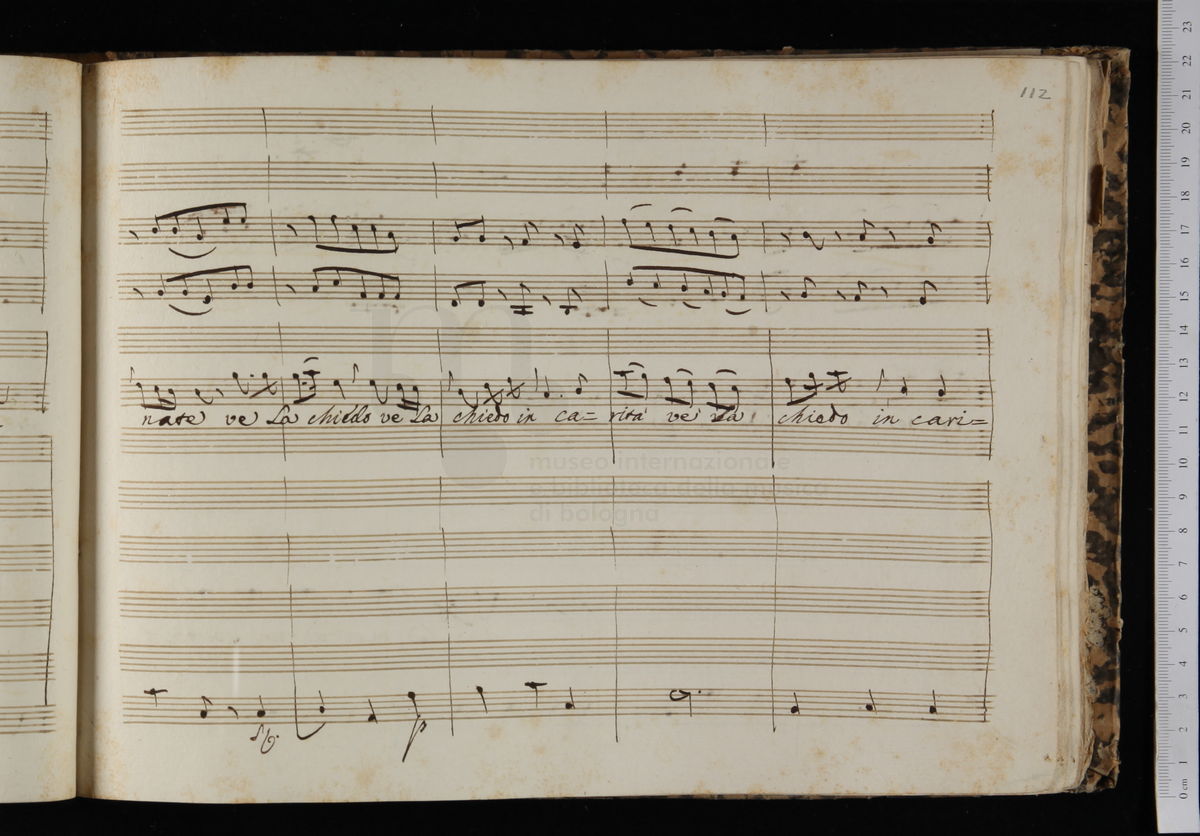 112
nate ve la chiedo ve la chiedo in ca= rità ve la chiedo in cari=
p
museo internazionale
e biblioteca della musica
di bologna
23
22
21
20
19
18
17
16
15
14
13
12
11
10
9
8
7
6
5
4
3
2
1
0 cm